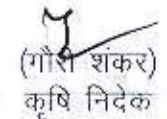 (गौरी शंकर)
कृषि निदेक